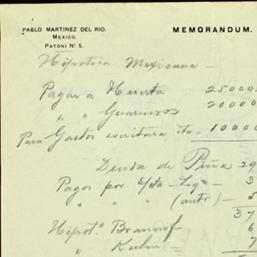 PABLO MARTINEZ DEL RIO.
MEXICO.
PATONI Nº 5.
MEMORANDUM.
Hipoteca Mexicana —
Pagar a Huerta 25000
" " Guarneros 20000
Para Gastos escritura &a — 10000
Deuda de Peña 29
Pagos por Liga — 3
" " (auto) — 5
37
Hipota. Branniff 6
" Kuhn —